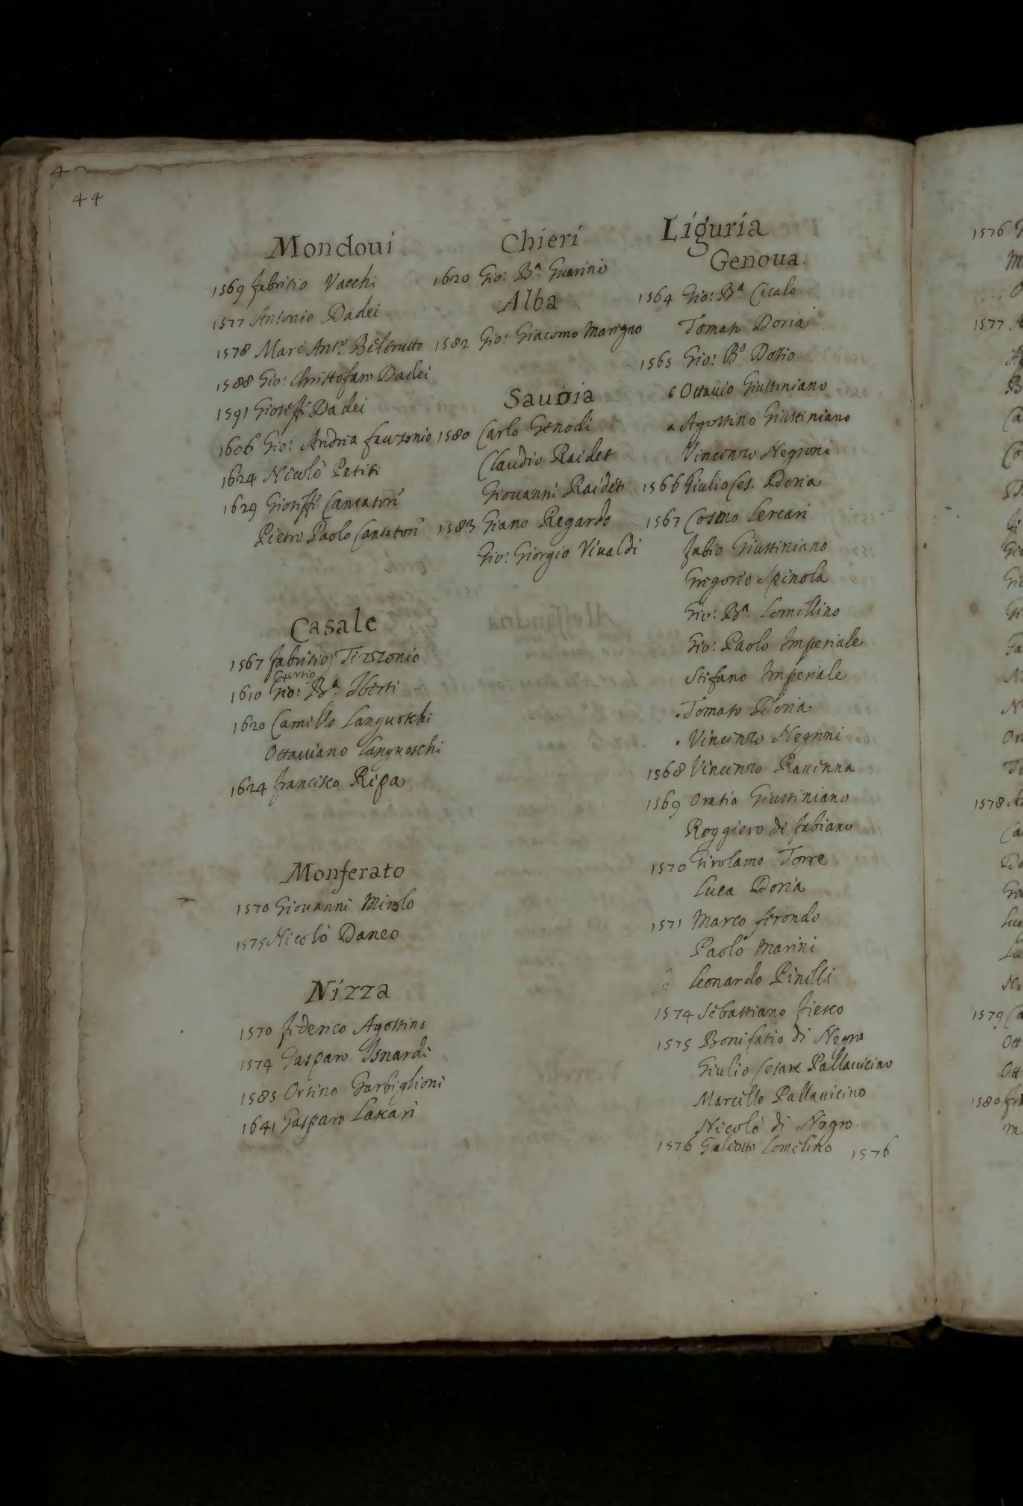 44
Mondoui
1569 fabritio Vacchi
1577 Antonio Dadei
1578 Marc'Ant.º Belbrutto
1588 Gio: Christofaro Dadei
1591 Gioseffi Dadei
1606 Gio: Andria fauzonio
1624 Nicolò Petiti
1629 Gioseffi Cantatori
Pietro Paolo Cantatori
Casale
1567 fabritio Tizzonio
Curtio
1610 Gio: Bª. Iberti
1620 Camillo Languoschi
Ottauiano Languoschi
1624 francisco Ripa
Monferato
1570 Giouanni Mirolo
1575 Nicolò Daneo
Nizza
1570 federico Agostino
1574 Gasparo Isnardi
1585 Orsino Garbiglioni
1641 Gasparo Lascari
Chieri
1620 Gio: Bª. Guarino
Alba
1582 Gio: Giacomo Marigno
Sauoia
1580 Carlo Genodi
Claudio Raidet
Giouanni Raidet
1583 Giano Regardo
Gio: Giorgio Viualdi
Liguria
Genoua
1564 Gio: Bª Cicalo
Tomaso Doria
1565 Gio: Bª Dotio
Ottauio Giustiniano
Agostino Giustiniano
Vincenzo Negroni
1566 Giulio Ces. Doria
1567 Cosmo Lercari
fabio Giustiniano
Gregorio Spinola
Gio: Bª. Lomellino
Gio: Paolo Imperiale
Stefano Imperiale
Tomaso Doria
Vincenzo Negroni
1568 Vincenzo Rauenna
1569 Oratio Giustiniano
Roggiero di fabiano
1570 Girolamo Torre
Luca Doria
1571 Marco Gerondo
Paolo Marini
Leonardo Pinelli
1574 Sebastiano fiesco
1575 Bonifatio di Negro
Giulio Cesare Pallauicino
Marcello Pallauicino
Nicolò di Negro
1576 Galeotto Lomelino 1576
1576
1577
1578
1579
1580